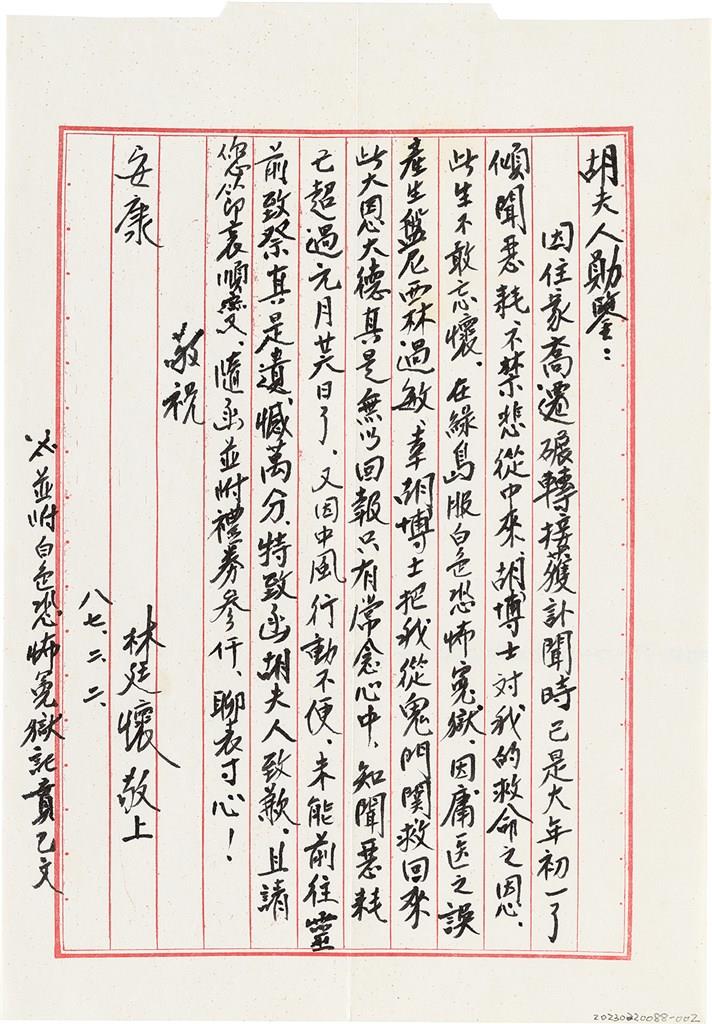 胡夫人勛鑒：
因住家喬遷碾轉接獲訃聞時已是大年初一了
傾聞惡耗、不禁悲從中來、胡博士對我的救命之恩、
此生不敢忘懷、在綠島服白色恐怖冤獄、因庸医之誤
產生盤尼西林過敏、幸胡博士把我從鬼門関救回來
此大恩大德真是無以回報只有常念心中、知聞惡耗
已超過元月廿六日了、又因中風行動不便、未能前往靈
前致祭真是遺憾萬分、特致函胡夫人致歉、且請
您節哀順變、隨函並附禮券參仟、聊表寸心！
敬祝
安康
林廷懷 敬上
八七、二、二、
並附白色恐怖冤獄記實乙文
20230220088-002